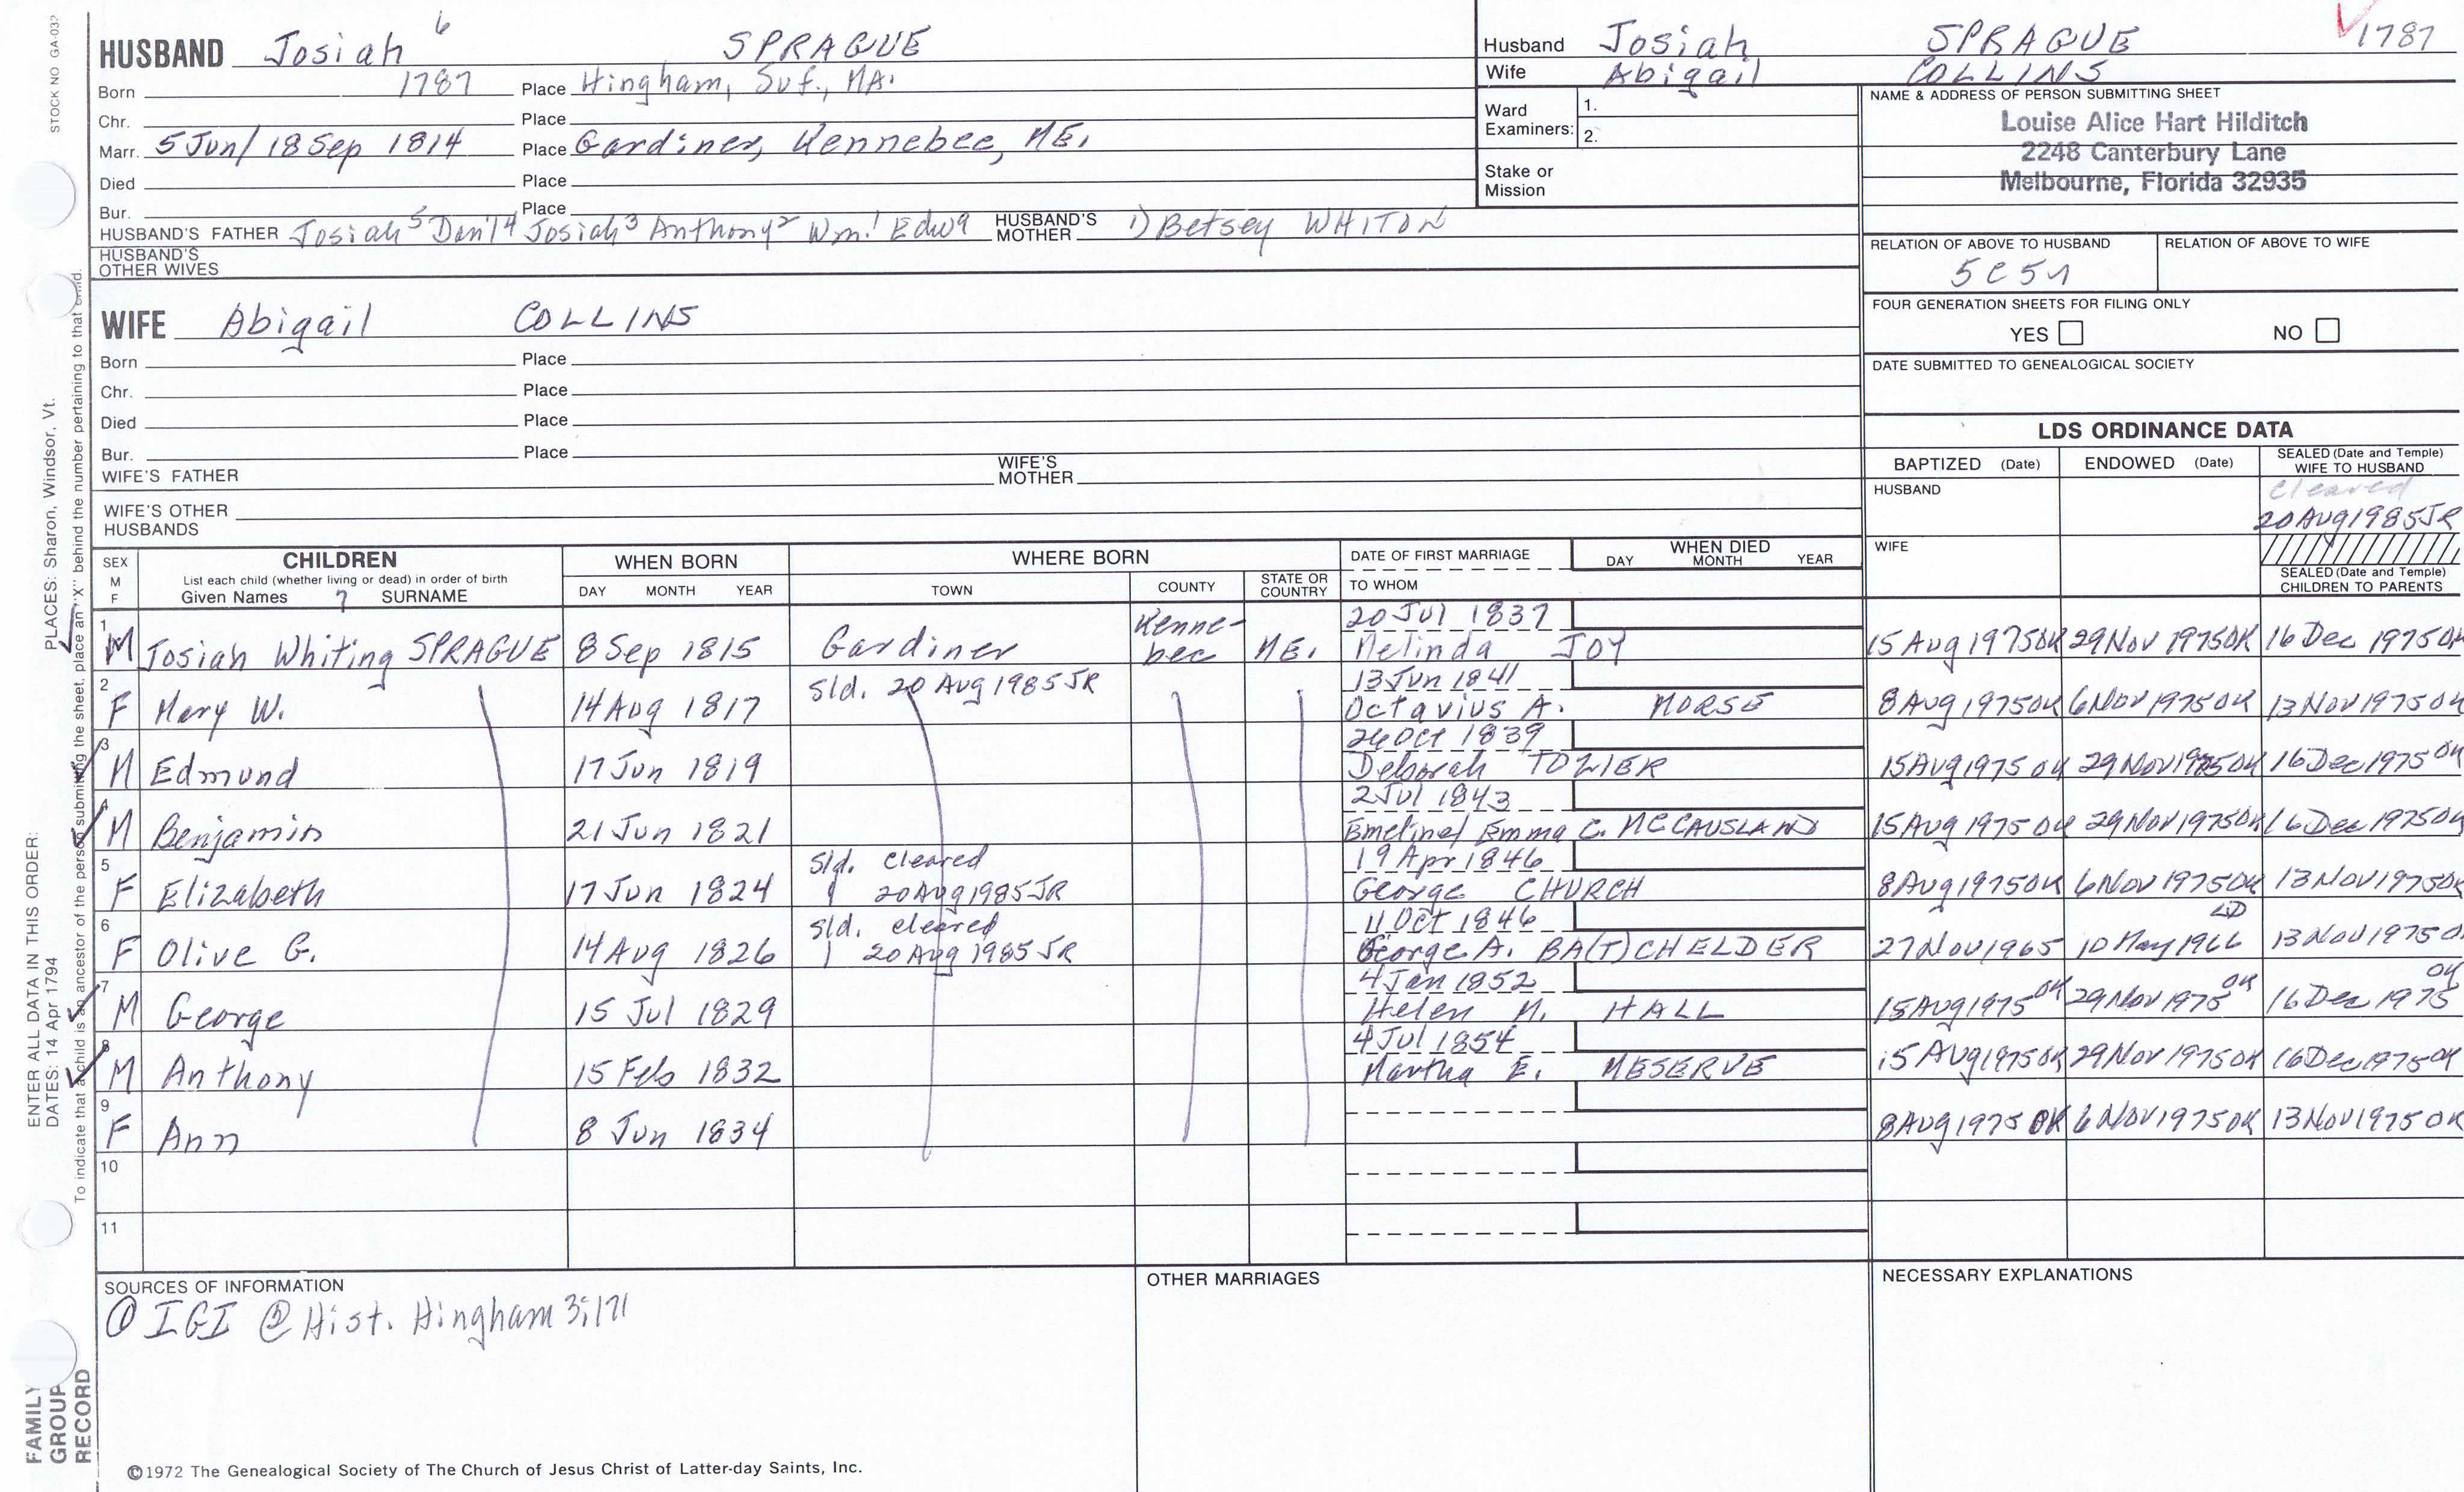 STOCK NO GA-032
HUSBAND Josiah 6 SPRAGUE
Born 1787 Place Hingham, Suf., MA.
Chr. Place
Marr. 5 Jun/18 Sep 1814 Place Gardiner, Kennebec, ME.
Died Place
Bur. Place
HUSBAND'S FATHER Josiah5 Dan'l4 Josiah3 Anthony2 Wm.1 Edwd HUSBAND'S MOTHER 1) Betsey WHITON
HUSBAND'S OTHER WIVES
WIFE Abigail COLLINS
Born Place
Chr. Place
Died Place
Bur. Place
WIFE'S FATHER WIFE'S MOTHER
WIFE'S OTHER HUSBANDS
Husband Josiah SPRAGUE 1787
Wife Abigail COLLINS
Ward Examiners: 1.
2.
Stake or Mission
NAME & ADDRESS OF PERSON SUBMITTING SHEET
Louise Alice Hart Hilditch
2248 Canterbury Lane
Melbourne, Florida 32935
RELATION OF ABOVE TO HUSBAND RELATION OF ABOVE TO WIFE
5C5r
FOUR GENERATION SHEETS FOR FILING ONLY
YES NO
DATE SUBMITTED TO GENEALOGICAL SOCIETY
LDS ORDINANCE DATA
BAPTIZED (Date) ENDOWED (Date) SEALED (Date and Temple) WIFE TO HUSBAND
HUSBAND cleared
20 Aug 1985 JR
WIFE
SEALED (Date and Temple) CHILDREN TO PARENTS
SEX M F CHILDREN WHEN BORN WHERE BORN DATE OF FIRST MARRIAGE WHEN DIED
List each child (whether living or dead) in order of birth DAY MONTH YEAR
Given Names ? SURNAME DAY MONTH YEAR TOWN COUNTY STATE OR COUNTRY TO WHOM
1 M Josiah Whiting SPRAGUE 8 Sep 1815 Gardiner Kennebec ME. 20 Jul 1837 Melinda JOY 15 Aug 1975 OK 29 Nov 1975 OK 16 Dec 1975 OK
2 F Mary W. 14 Aug 1817 Sld. 20 Aug 1985 JR 13 Jun 1841 Octavius A. MORSE 8 Aug 1975 OK 6 Nov 1975 OK 13 Nov 1975 OK
3 M Edmund 17 Jun 1819 26 Oct 1839 Deborah TOZIER 15 Aug 1975 OK 29 Nov 1975 OK 16 Dec 1975 OK
4 M Benjamin 21 Jun 1821 2 Jul 1843 Emeline/Emma C. MCCAUSLAND 15 Aug 1975 OK 29 Nov 1975 OK 16 Dec 1975 OK
5 F Elizabeth 17 Jun 1824 Sld. cleared 20 Aug 1985 JR 19 Apr 1846 George CHURCH 8 Aug 1975 OK 6 Nov 1975 OK 13 Nov 1975 OK
6 F Olive G. 14 Aug 1826 Sld. cleared 20 Aug 1985 JR 11 Oct 1846 George A. BA(T)CHELDER 27 Nov 1965 10 May 1966 LD 13 Nov 1975 O
7 M George 15 Jul 1829 4 Jan 1852 Helen M. HALL 15 Aug 1975 OK 29 Nov 1975 OK 16 Dec 1975 OK
8 M Anthony 15 Feb 1832 4 Jul 1854 Martha E. MESERVE 15 Aug 1975 OK 29 Nov 1975 OK 16 Dec 1975 OK
9 F Ann 8 Jun 1834 8 Aug 1975 OK 6 Nov 1975 OK 13 Nov 1975 OK
10
11
SOURCES OF INFORMATION OTHER MARRIAGES NECESSARY EXPLANATIONS
① IGI ② Hist. Hingham 3:171
©1972 The Genealogical Society of The Church of Jesus Christ of Latter-day Saints, Inc.
FAMILY GROUP RECORD
ENTER ALL DATA IN THIS ORDER:
DATES: 14 Apr 1794 PLACES: Sharon, Windsor, Vt.
To indicate that a child is an ancestor of the person submitting the sheet, place an "X" behind the number pertaining to that child.